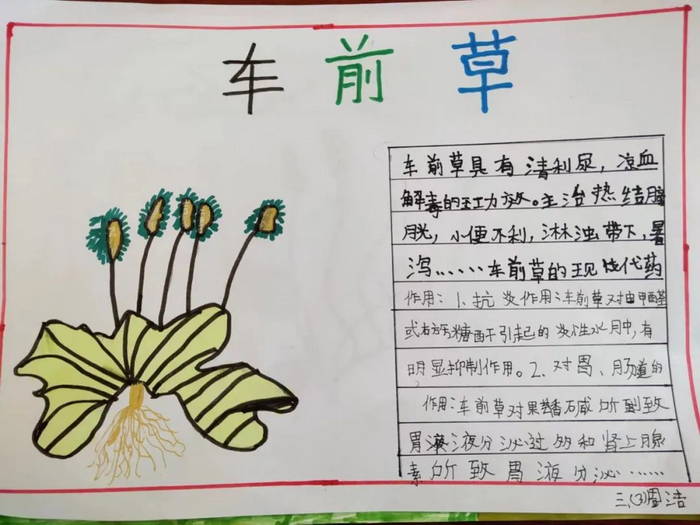 车前草
车前草具有清利尿，凉血
解毒的功效。主治热结膀
胱，小便不利，淋浊带下，暑
泻……车前草的现代药
作用：1.抗炎作用：车前草对由甲醛
或右旋糖酐引起的炎性水肿，有
明显抑制作用。2.对胃、肠道的
作用：车前草对果糖碱所到致
胃液液分泌过多和肾上腺
素所致胃液分泌……
三、(3)周洁